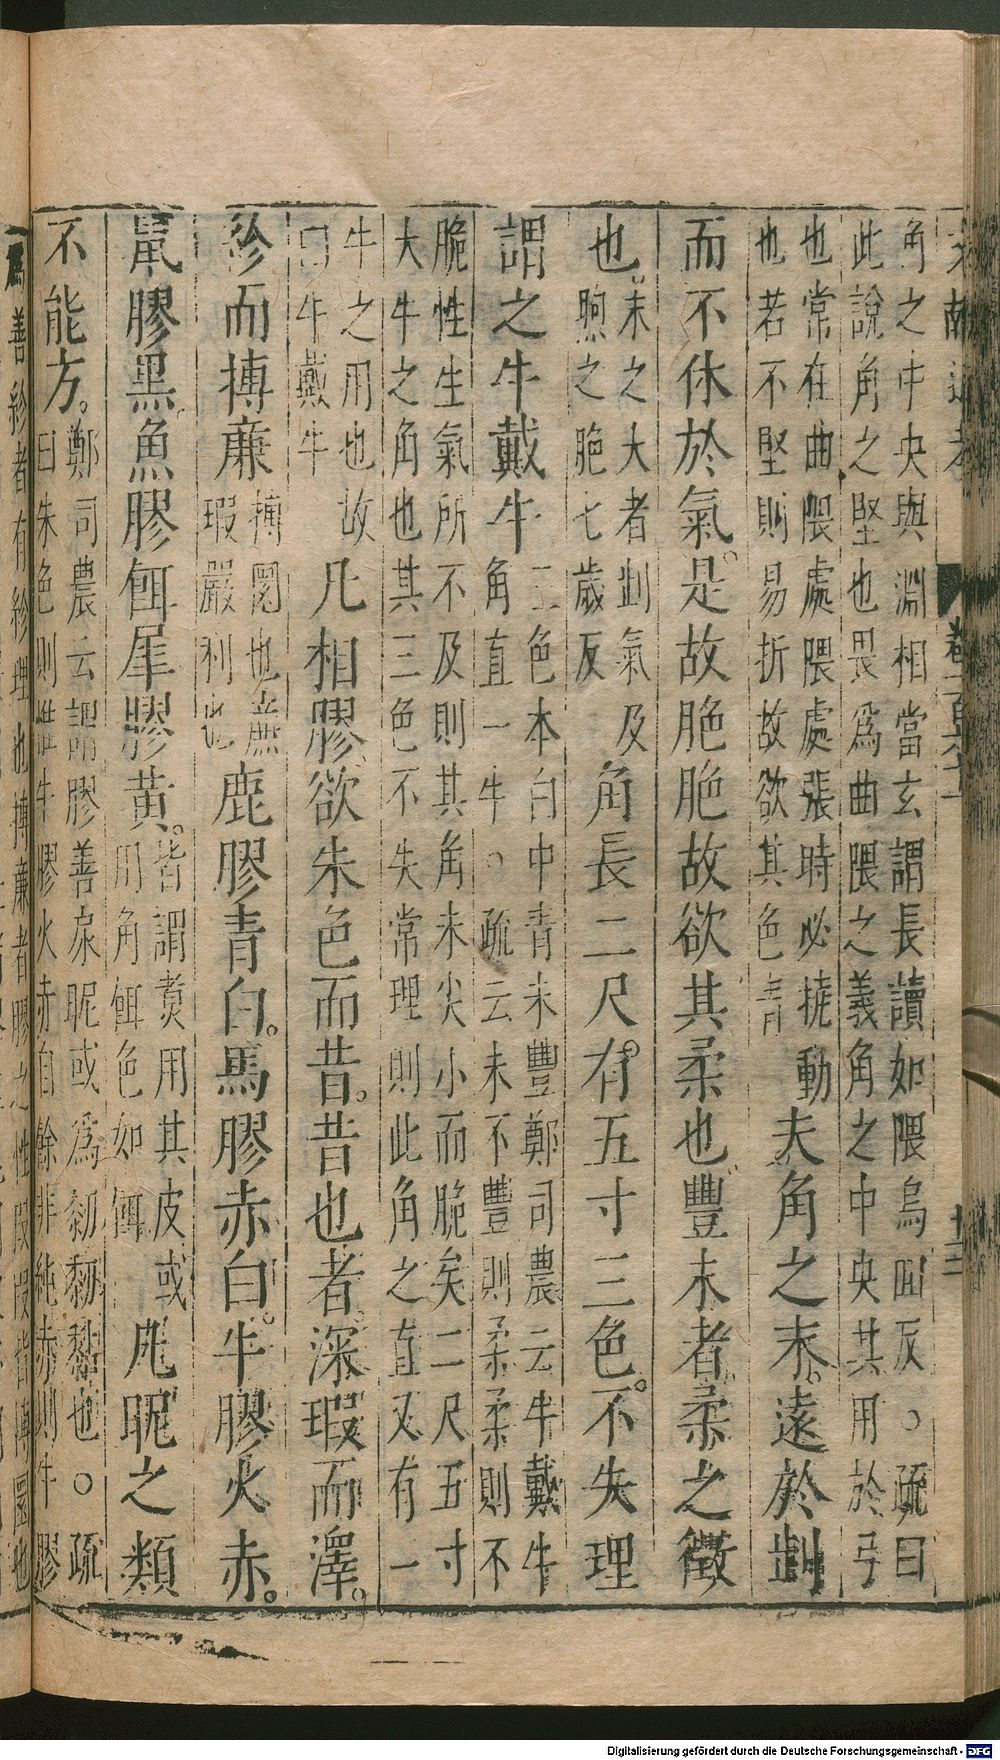 文獻通考
卷一百六十一
十三
角之中央與淵相當玄謂長讀如隈烏囘反○疏曰
此說角之堅也畏爲曲隈之義角之中央其用於弓
也常在曲隈處隈處張時必撓動
也若不堅則易折故欲其色青
夫角之末。遠於㓽
而不休於氣。是故脃脃故欲其柔也豐末者。柔之徵
也。
末之大者㓽氣及
煦之脃七歲反
角長二尺。有五寸三色。不失理
謂之牛戴牛
三色本白中青末豐鄭司農云牛戴牛
角直一牛○疏云末不豐則柔柔則不
脆性生氣所不及則其角末尖小而脆矣二尺五寸
大牛之角也其三色不失常理則此角之直又有一
牛之用也故
曰牛戴牛
凡相膠欲朱色而昔。昔也者。深瑕而澤。
紾而摶廉
摶圜也廉
瑕嚴利也
鹿膠青白。馬膠赤白。牛膠火赤。
鼠膠黑。魚膠餌犀膠黃。
皆謂煑用其皮或
用角餌色如餌
凡昵之類
不能方。
鄭司農云謂膠善戾昵或爲䵑䵑黏也○疏
曰朱色則惟牛膠火赤自餘非純赤則牛膠
爲善紾者有紾理也摶廉者膠之性瑕瑕皆摶圜也
Digitalisierung gefördert durch die Deutsche Forschungsgemeinschaft - DFG